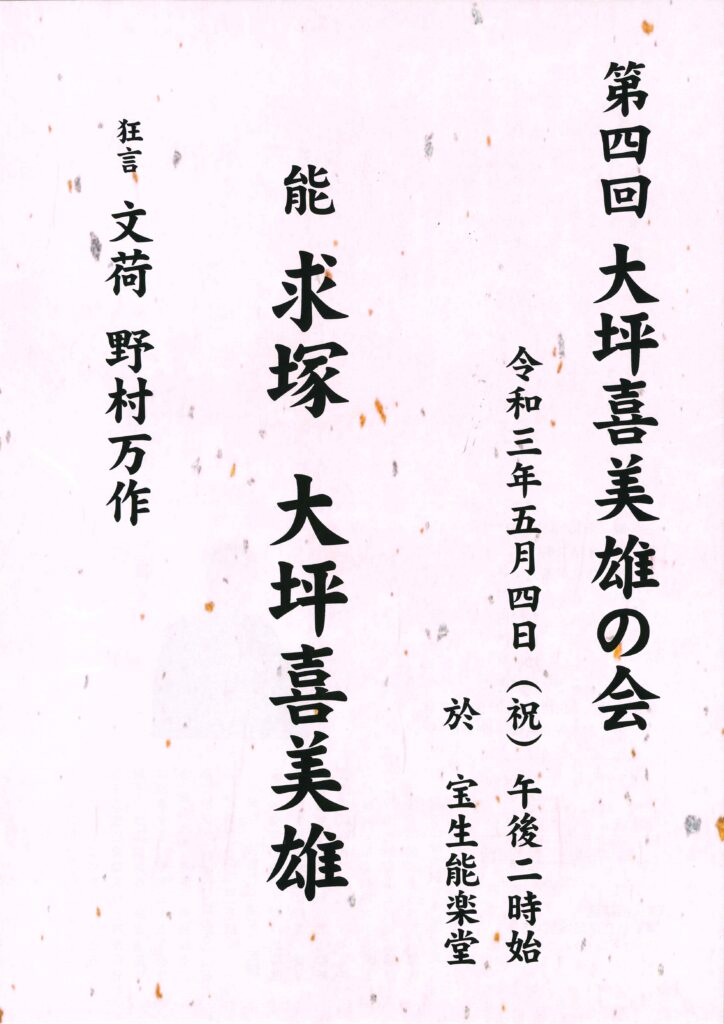 第四回 大坪喜美雄の会
令和三年五月四日（祝）午後二時始
於 宝生能楽堂
能 求塚 大坪喜美雄
狂言 文荷 野村万作